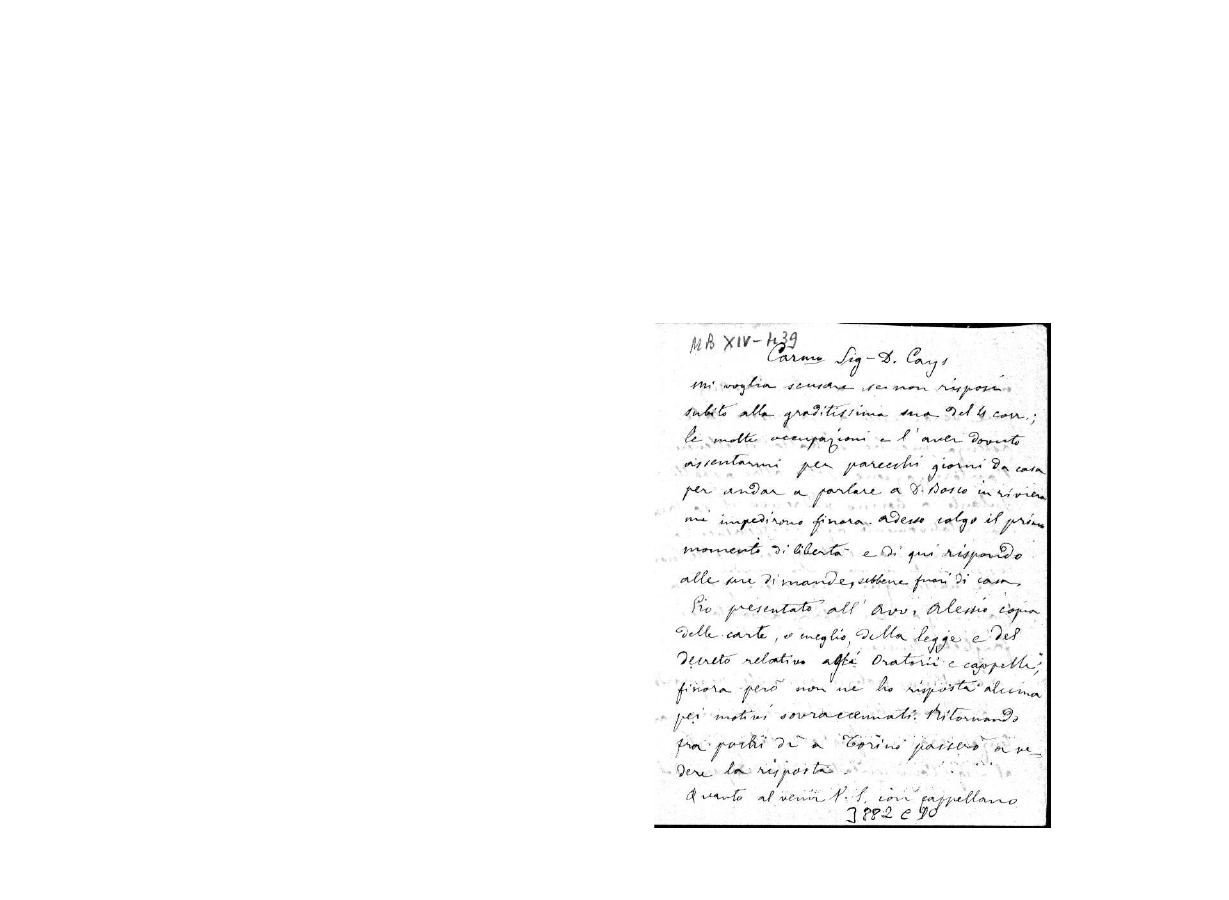 MB XIV-439
Carmo Sig-D. Cays
mi voglia scusare se non risposi
subito alla graditissima sua del 4 corr.;
le molte occupazioni e l'aver dovuto
assentarmi per parecchi giorni da casa
per andar a parlare a D. Bosco in riviera
mi impedirono finora. Adesso colgo il primo
momento di libertà e di qui rispondo
alle sue dimande, sebbene fuori di casa.
Ho presentato all' Avv. Alessio copia
delle carte, o meglio, della legge e del
decreto relativo agli Oratorii e cappelle;
finora però non ne ho risposta alcuna
pei motivi sovraccennati. Ritornando
fra pochi dì a Torino passerò a ve-
dere la risposta.
Quanto al venir V. S. con cappellano
3882 C 10